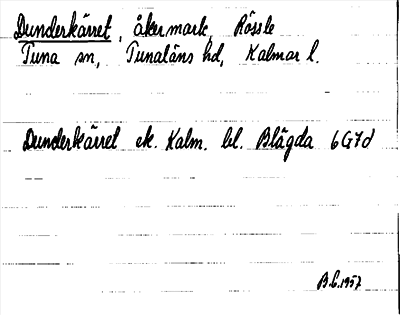 Dunderkärret, åkermark, Rössle
Tuna sn, Tunaläns hd, Kalmar l.
Dunderkärret ek. Kalm. bl. Blågda 6G7d
B.C. 1957